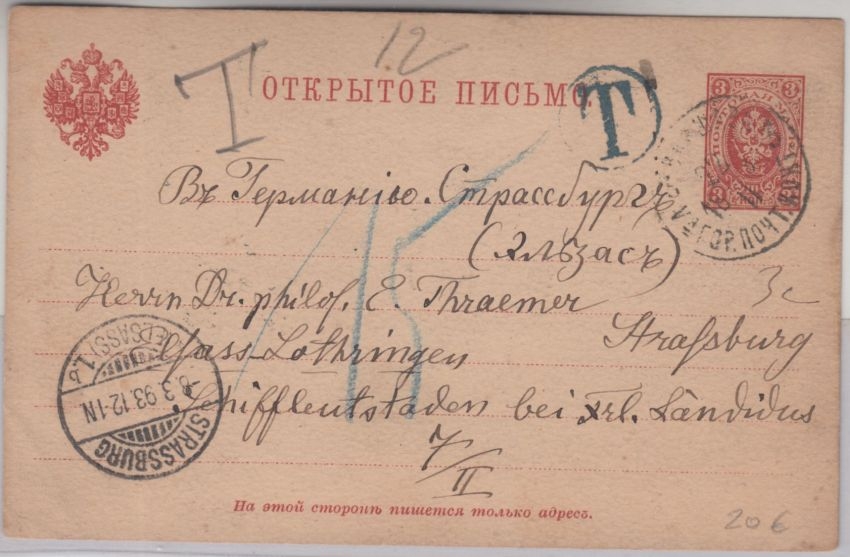 12
T
ОТКРЫТОЕ ПИСЬМО.
T
3 3
Въ Германію. Страссбургъ
(Эльзасъ)
15
Herrn Dr. philos. E. Thraemer
Straßburg
3c
Elsass-Lothringen
Schiffleutstaden bei Frl. Ländidus
7/II
STRASSBURG (ELSASS) 1.b
8.3.93.12-1N
ГОР. ПОЧТ.
На этой сторонѣ пишется только адресъ.
20€